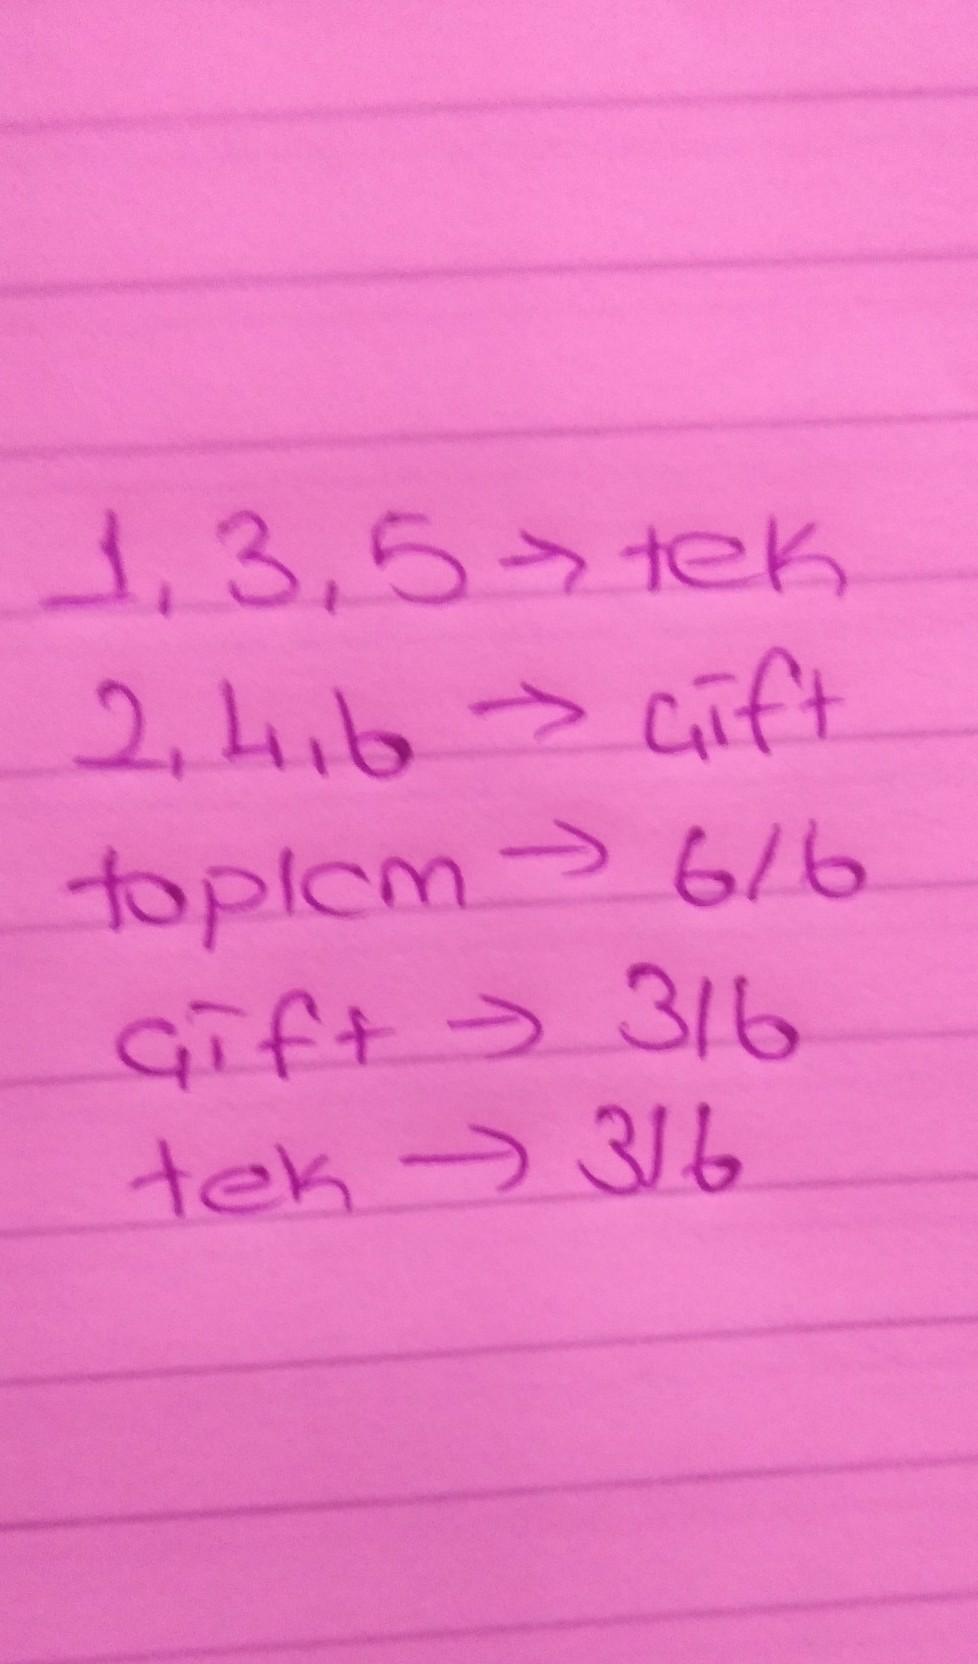 1, 3, 5 → tek
2, 4, 6 → çift
toplam → 6/6
çift → 3/6
tek → 3/6